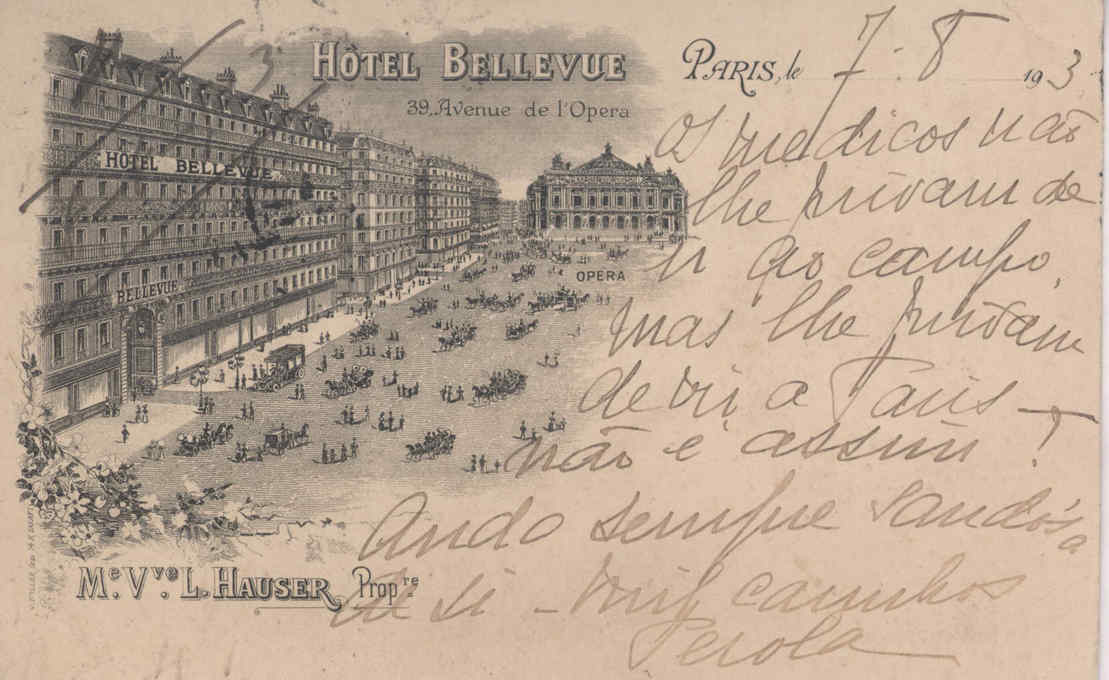 HÔTEL BELLEVUE
39, Avenue de l'Opera
PARIS, le 7. 8 1903
HÔTEL BELLEVUE
BELLEVUE
OPERA
Os medicos não
lhe privam de
ir ao campo,
mas lhe privam
de vir a Paris –
não é assim?
Ando sempre saudosa
de si – Mil carinhos
Perola
Mᵉ. Vᵛᵉ. L. HAUSER, Propʳᵉ